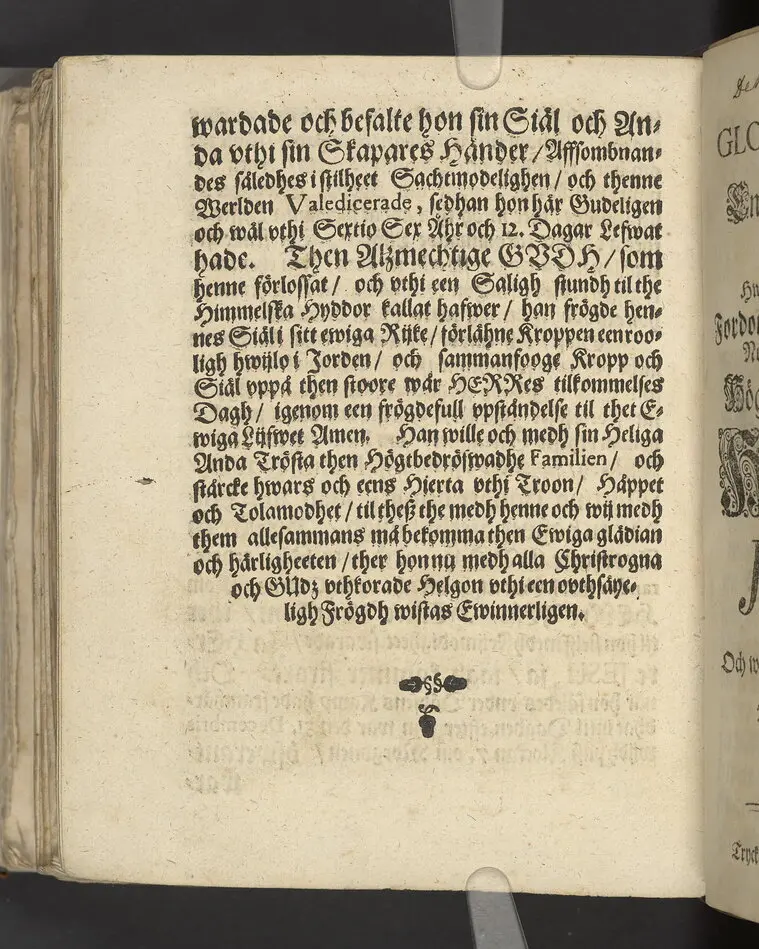 wardade och befalte hon sin Siäl och An⸗
da vthi sin Skapares Händer / Affsombnan⸗
des såledhes i stilheet Sachtmodelighen / och thenne
Werlden Valedicerade, sedhan hon här Gudeligen
och wäl vthi Sextio Sex Åhr och 12. Dagar Lefwat
hade. Then Alzmechtige GVDH / som
henne förlossat / och vthi een Saligh stundh til the
Himmelska Hyddor kallat hafwer / han frögde hen⸗
nes Siäl i sitt ewiga Rijke / förlähne Kroppen een roo⸗
ligh hwijlo i Jorden / och sammanfooge Kropp och
Siäl vppå then stoore wår HERRes tilkommelses
Dagh / igenom een frögdefull vpståndelse til thet E⸗
wiga Lijfwet Amen. Han wille och medh sin Heliga
Anda Trösta then Högtbedröfwadhe Familien / och
stärcke hwars och eens Hierta vthi Troon / Håppet
och Tolamodhet / til theß the medh henne och wij medh
them allesammans må bekomma then Ewiga glädian
och härligheeten / ther hon nu medh alla Christrogna
och GUdz vthkorade Helgon vthi een outhsäye⸗
ligh Frögdh wistas Ewinnerligen.
GLO
En
Jordo
Hög
Och w
Tryck